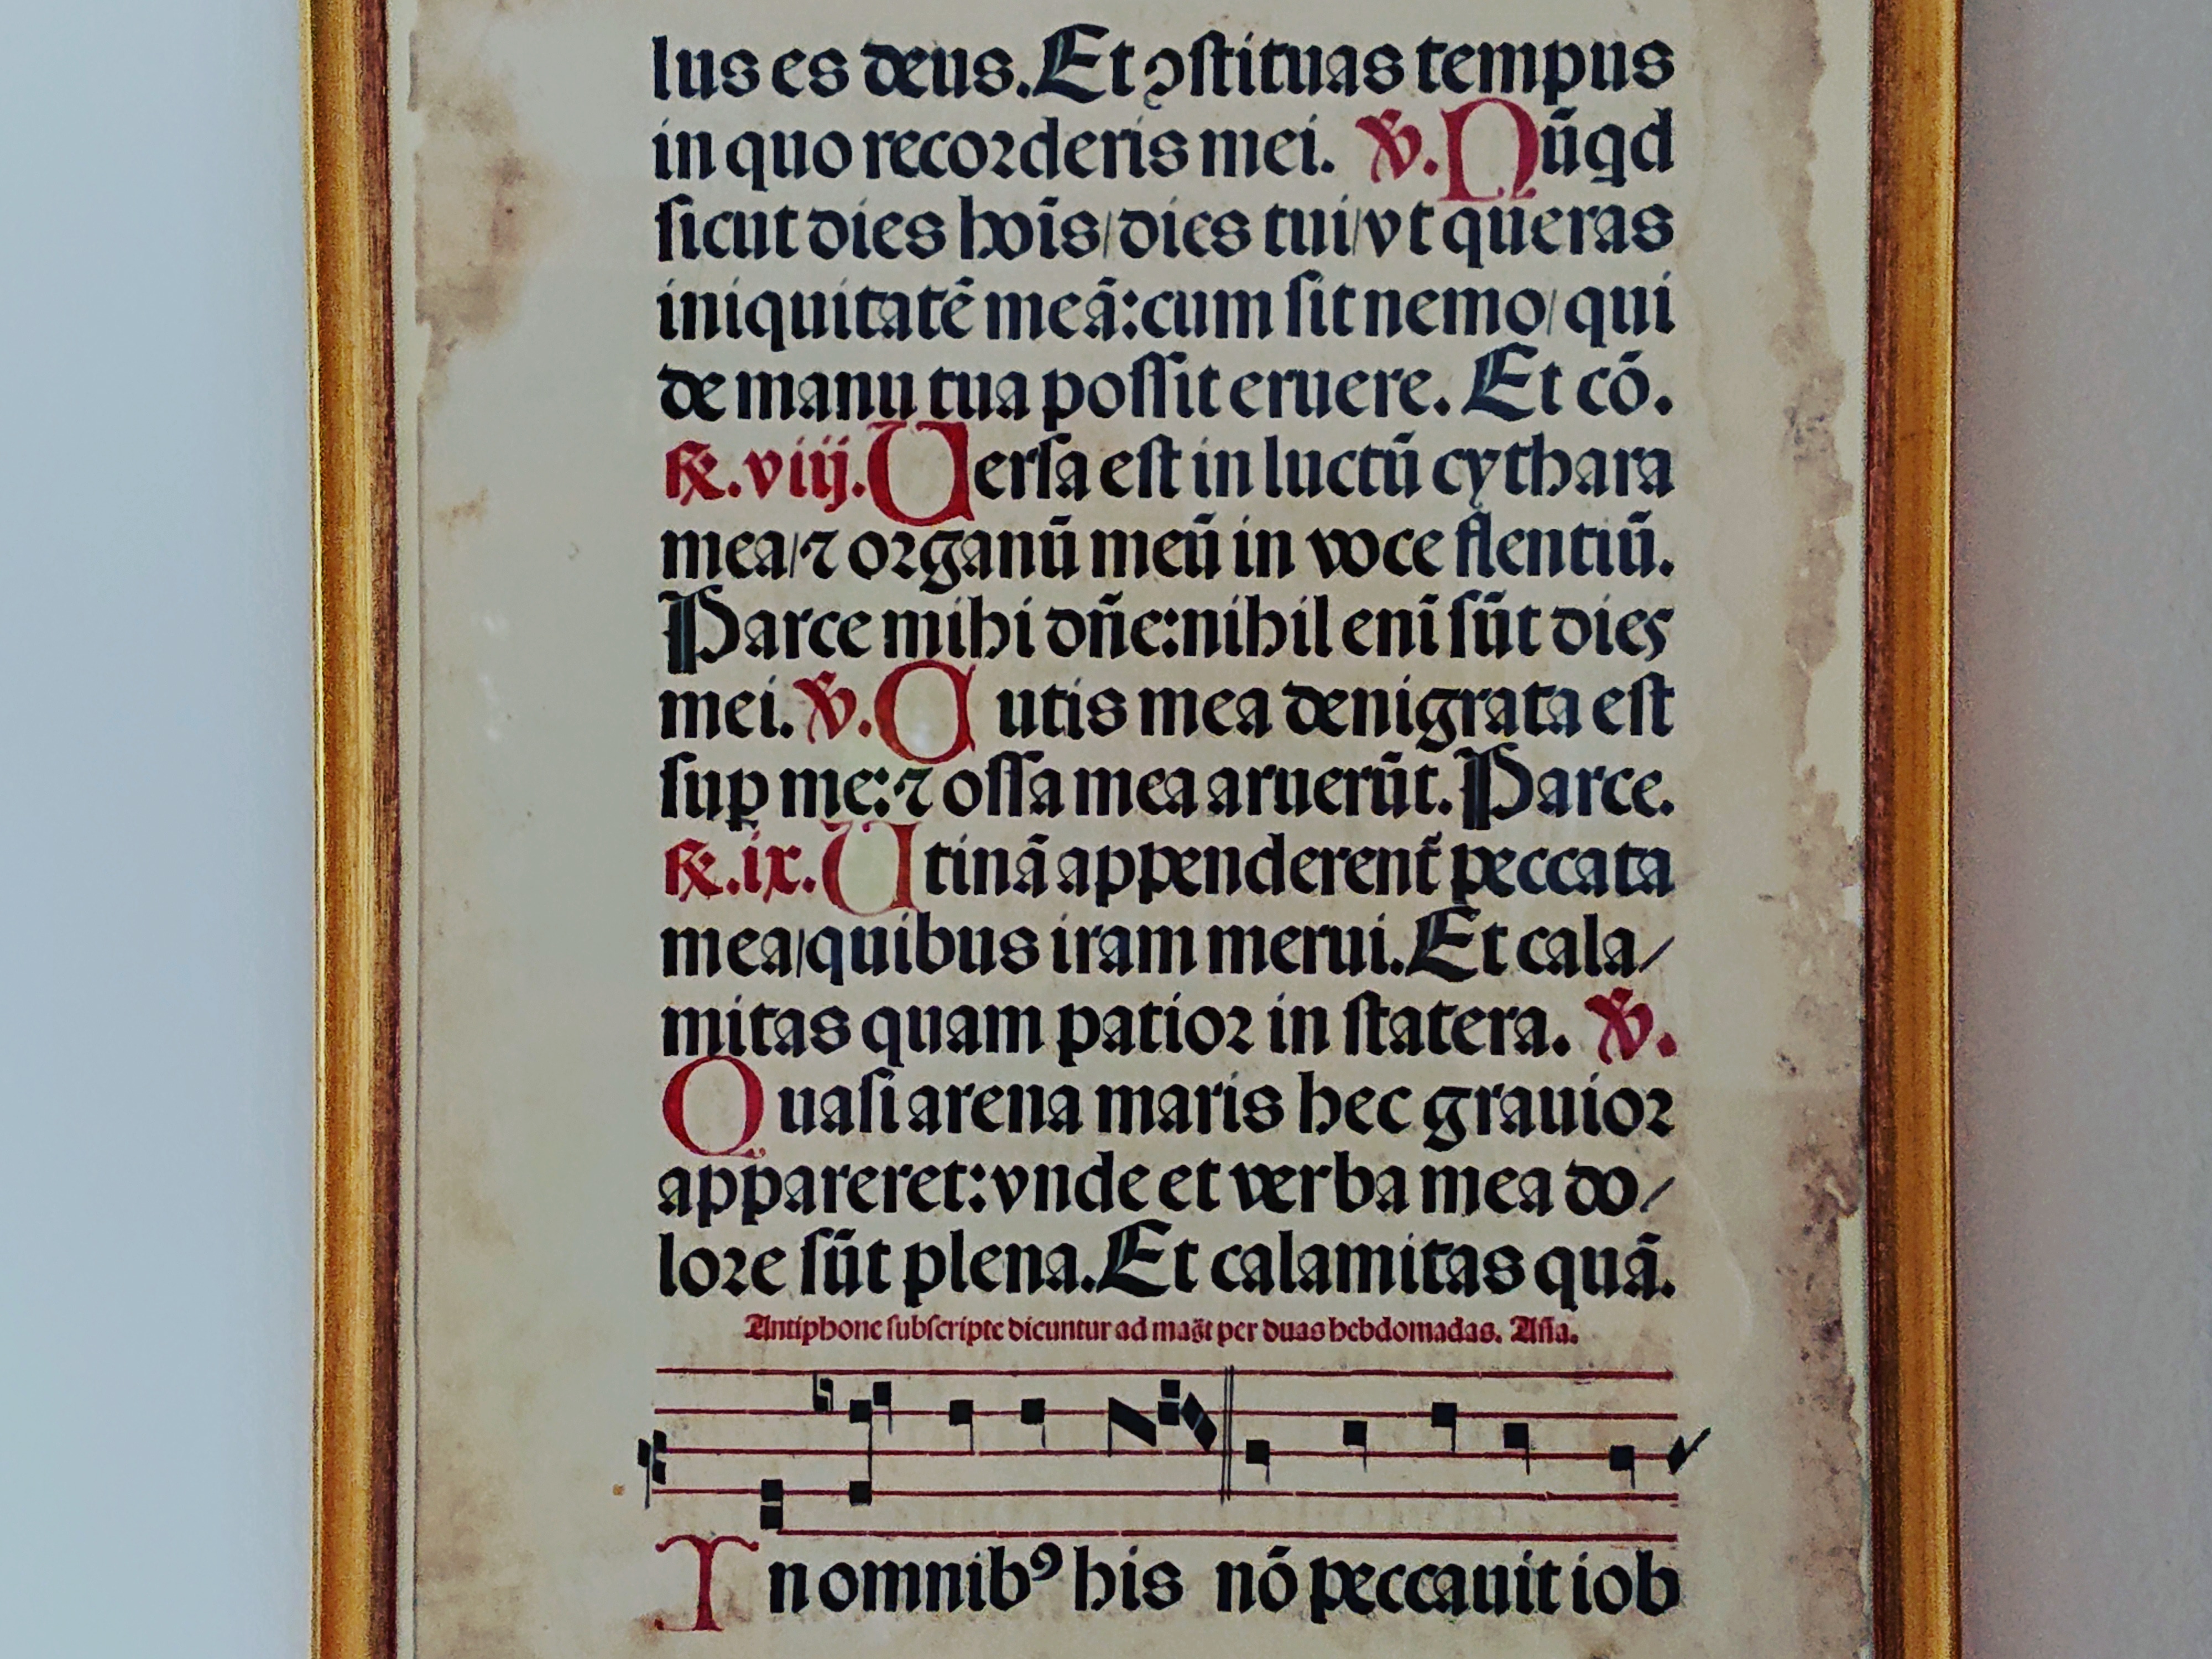 lus es deus. Et ↄſtituas tempus
in quo recoꝛderis mei. ℣. Nūqd
ſicut dies hoīs/dies tui/vt queras
iniquitatē meā:cum ſit nemo/qui
de manu tua poſſit eruere. Et cō.
℟.viij. Uerſa eſt in luctū cythara
mea/⁊ oꝛganū meū in voce flentiū.
Parce mihi dñe:nihil enī ſūt dies
mei. ℣. Cutis mea denigrata eſt
ſuꝑ me:⁊ oſſa mea aruerūt. Parce.
℟.ix. Utinā appenderent᷑ peccata
mea/quibus iram merui. Et cala/
mitas quam patioꝛ in ſtatera. ℣.
Quaſi arena maris hec grauioꝛ
appareret:vnde et verba mea do/
loꝛe ſūt plena. Et calamitas quā.
Antiphone ſubſcripte dicuntur ad magt per duas hebdomadas. Aña.
In omnibꝰ his nō peccauit iob